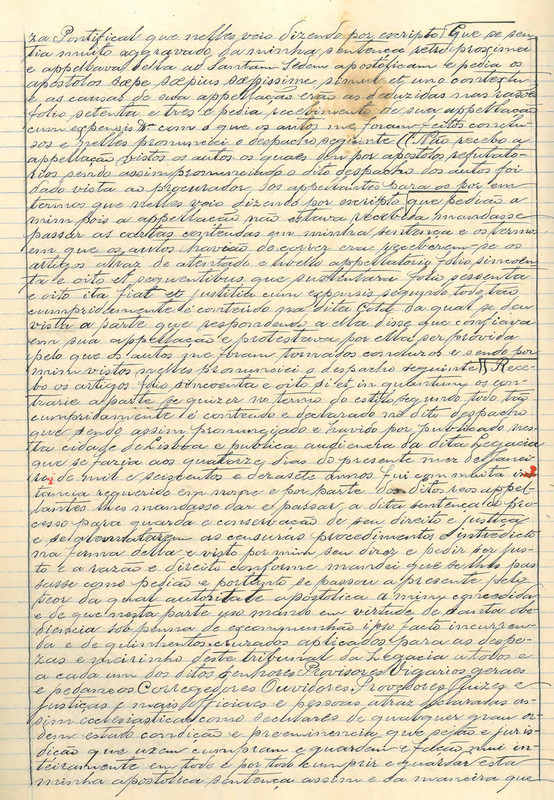 za Pontifical que nelles veio dizendo por escripto que se sen
tia muito aggravado da minha sentença retro proxima
e appellava della ad Santam Sedem apostolicam e pedia os
apostolos sæpe sæpius sæpissime simul et uno contextu
e as causas de sua appellação erão as deduzidas nas razões
folio setenta e tres e pedia recebimento de sua appellação
cum expensis &c com o que os autos me foram feitos conclu
sos e nelles pronunciei o despacho seguinte Não recebo a
appellação vistos os autos os quaes dou por apostolos refutato
rios sendo assim pronunciado o dito despacho dos autos foi
dado vista ao procurador dos appellantes para os por em
termos que nelles veio dizendo por escripto que pedião a
mim pois a appellação não estava recebida mandasse
passar as cartas contendas em minha sentença e os termos
em que os autos havião de correr era receberem-se os
artigos atraz de atentado e libello appellatorio folio sincoen
ta e oito et sequentibus que sustentara folio sessenta
e oito ita fiat et justitia cum expensis segundo todo tão
cumpridamente é conteudo na dita da qual se deu
vista a parte que respondendo a ella disse que confiava
em sua appellação e protestava por ella ser provida
pelo que os autos me foram tornados conclusos e sendo por
mim vistos nelles pronunciei o despacho seguinte Rece
bo os artigos folio sincoenta e oito si et in quantum os con
trarie a parte se quizer no termo do estilo segundo todo tão
cumpridamente é conteudo e declarado no dito despacho
que sendo assim pronunciado e havido por publicado nes
ta cidade de Lisboa e publica audiencia da dita Legacia
que se fazia aos quatorze dias do presente mez de Janei
ro de mil e seiscentos e dezasete annos fui com muita ins
tancia requerido em nome e por parte dos ditos reos appel
lantes lhes mandasse dar e passar a dita sentença do pro
cesso para guarda e conservação de seu direito e justiça
e se levantarem as censuras procedimentos e interdicto
na forma della e visto por mim seu dizer e pedir ser jus
to e a razão e direito conforme mandei que se lhes pas
sasse como pedião e portanto se passou a presente pelo
teor da qual autoritate apostolica a mim concedida
e de que nesta parte uso mando em virtude de santa obe
diencia sob pena de excommunhão ipso facto incurren
da e de quinhentos cruzados aplicados para as despe
zas e meirinho deste tribunal da Legacia a todos e
a cada um dos ditos Senhores Provisores Vigarios geraes
e pedaneos Corregedores Ouvidores Provedores Juizes e
justiças e mais officiaes e pessoas atraz declaradas as
sim ecclesiasticas como seculares de qualquer grau or
dem estado condição e preeminencia que sejão e juris
dição que uzem cumpram e guardem e fação mui in
teiramente em todo e por todo cumprir e guardar esta
minha apostolica sentença assim e da maneira que